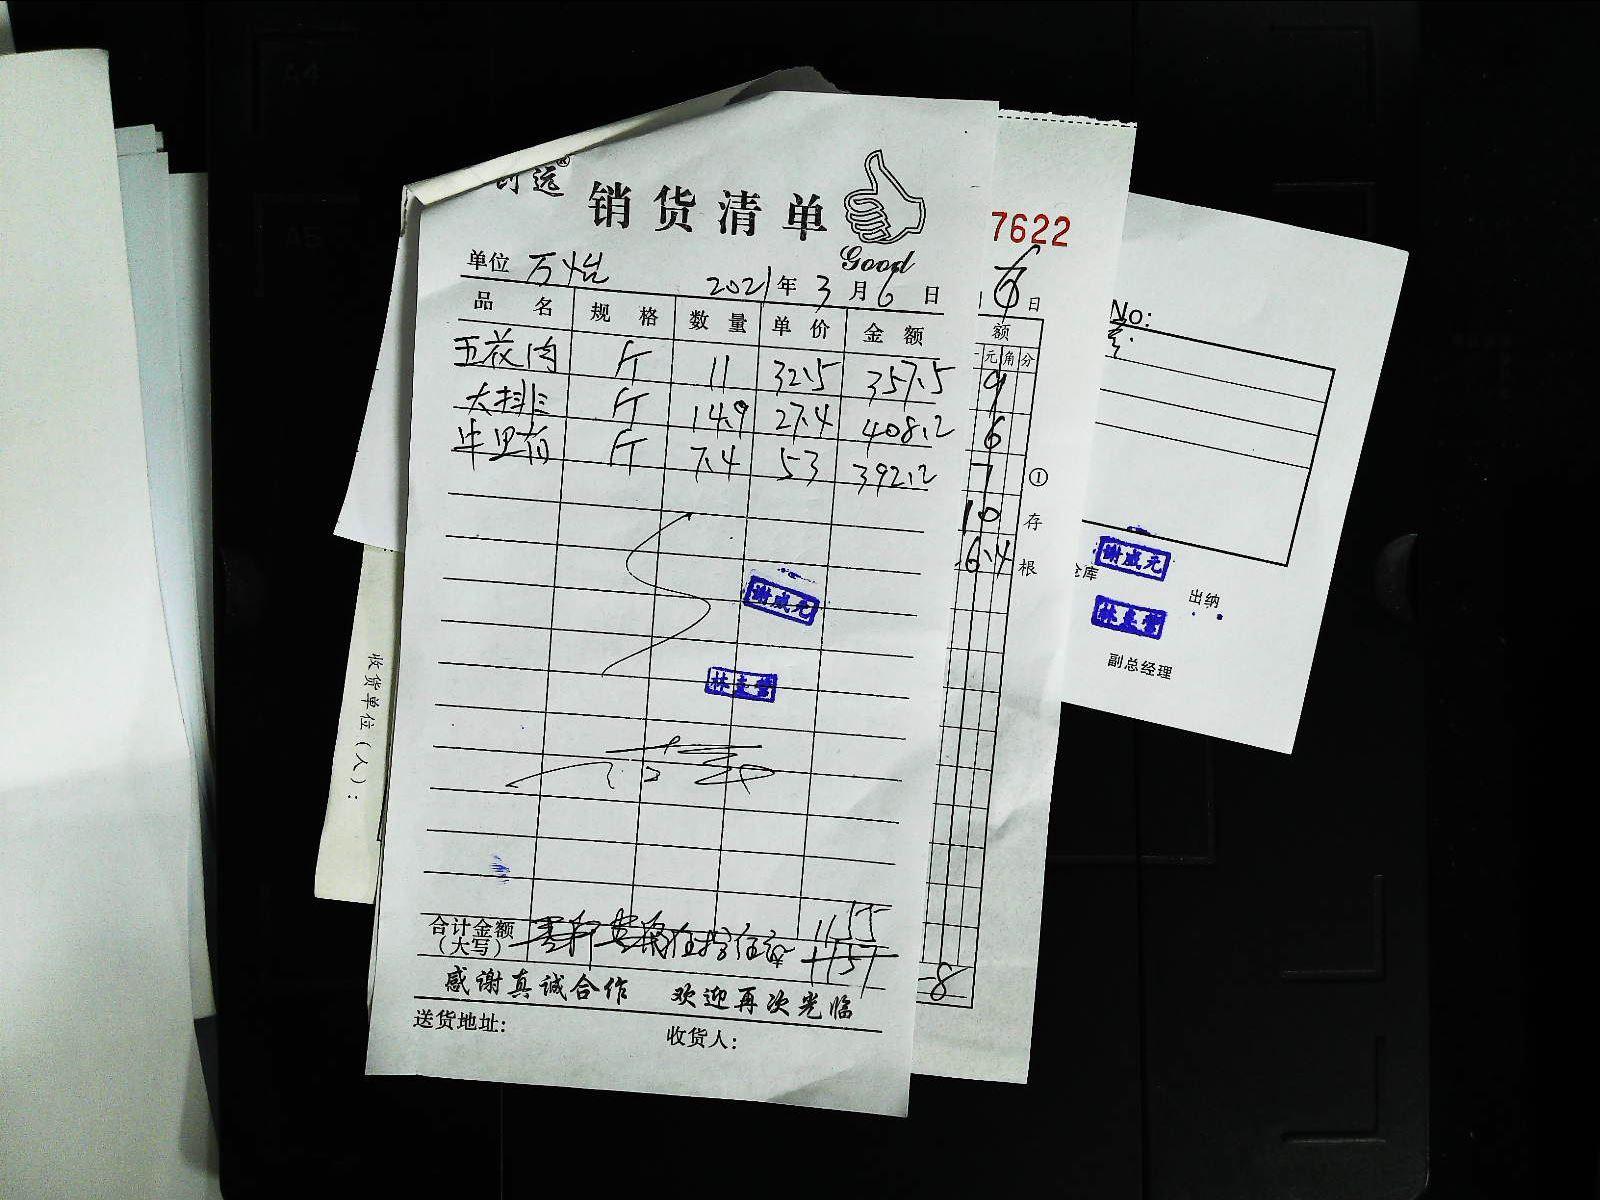 创远®
销货清单
Good
单位 万怡 2021年3月6日
品名 规格 数量 单价 金额
五花肉 斤 11 32.5 357.5
大排 斤 14.9 27.4 408.2
牛里脊 斤 7.4 53 392.2
谢成元
合计金额(大写) 1157
感谢真诚合作 欢迎再次光临
送货地址:
收货人:
7622
6日
额
元角分
9
6
7
10
6.4
8
①存根
No:
仓库
谢成元
出纳
副总经理
收货单位(人):
A4
A5